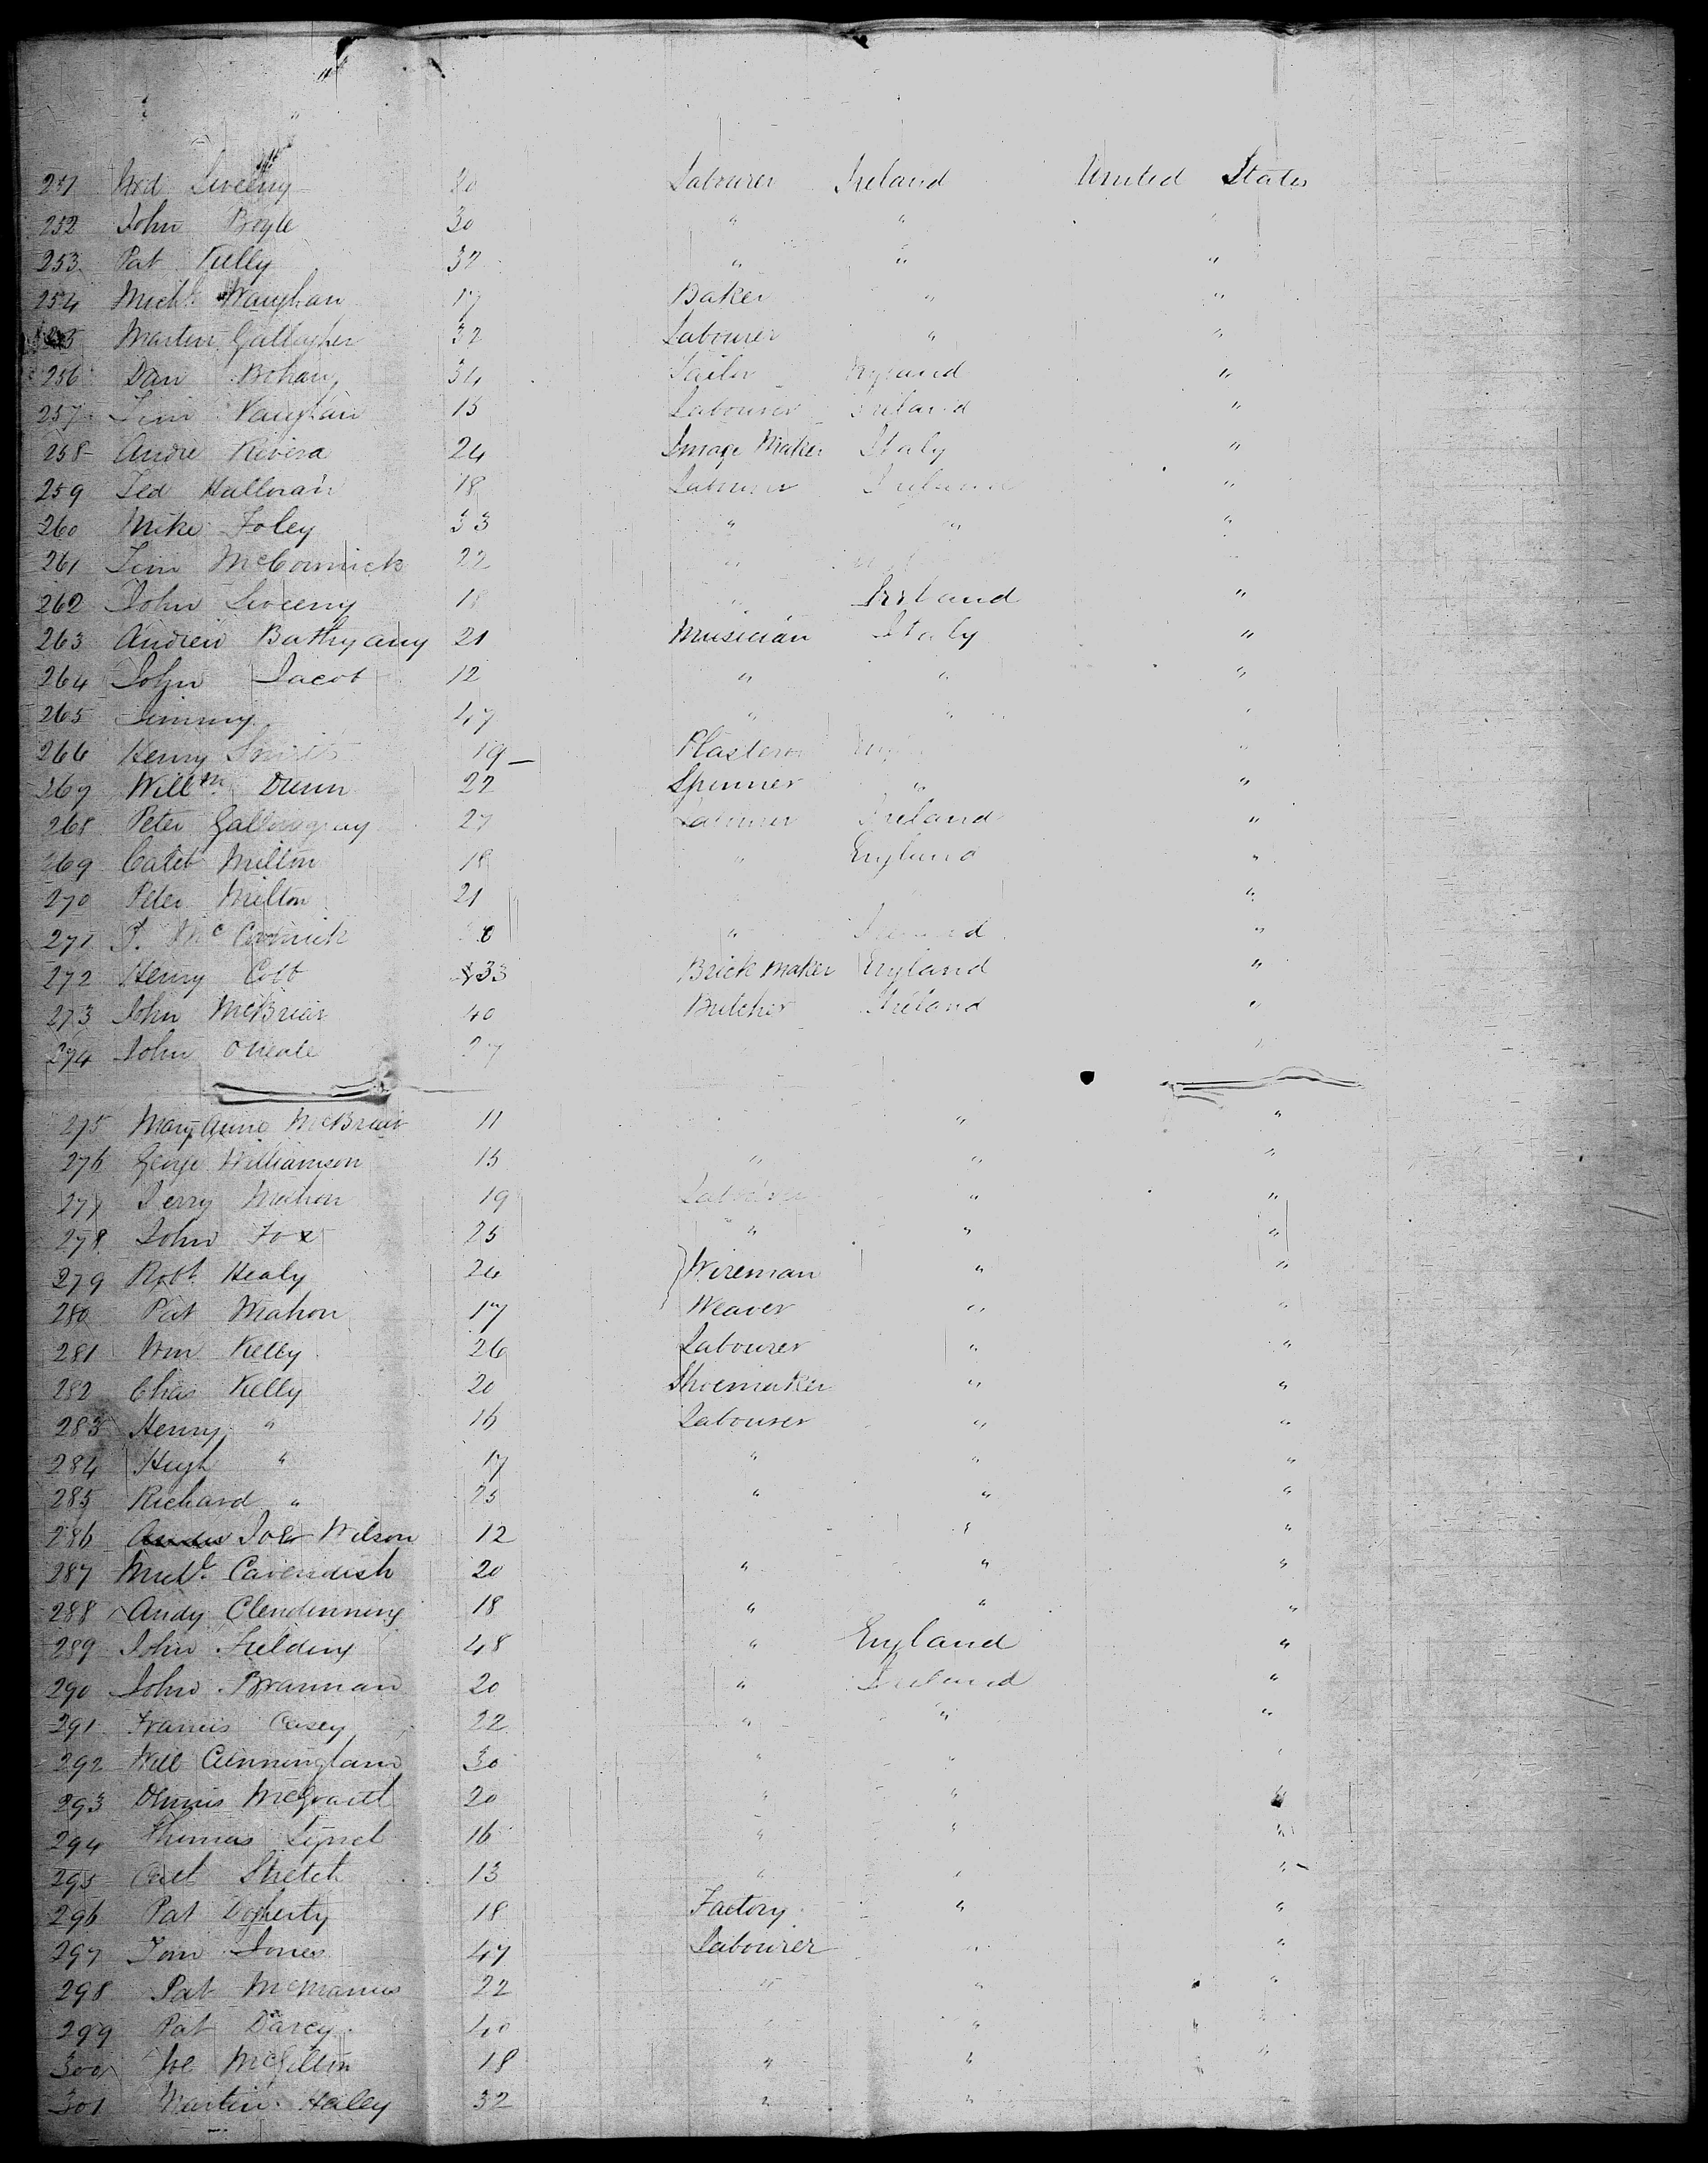 251 Wm Sweeny 20 Labourer Ireland United States
252 John Boyle 30 " " "
253 Pat Kelly 32 " " "
254 Michl Waughan 17 Baker " "
255 Martin Gallagher 32 Labourer " "
256 Dan Bohan 34 Tailor England "
257 Tim Vaughan 15 Labourer Ireland "
258 Andre Rivera 24 Image Maker Italy "
259 Ted Halloran 18 Labourer Ireland "
260 Mike Foley 33 " " "
261 Tim McCormick 22 "
262 John Sweeny 18 " Ireland "
263 Andrew Bathyany 21 Musician Italy "
264 John Jacob 12 " " "
265 Jimmy 47 " " "
266 Henry Smith 19 Plasterer "
267 Willm Dunn 22 Spinner " "
268 Peter 27 Labourer Ireland "
269 Caleb Milton 18 " England "
270 Peter Milton 21 "
271 McCormick " Ireland "
272 Henry Cobb 33 Brick Maker England "
273 John McBriar 40 Butcher Ireland "
274 John ONeale 27 "
275 Mary Anne McBriar 11 " "
276 George Williamson 15 " " "
277 Jerry Mahon 19 Labourer " "
278 John Fox 25 " " "
279 Robt Healy 24 Wireman " "
280 Pat Mahon 17 Weaver " "
281 Wm Kelly 26 Labourer " "
282 Chas Kelly 20 Shoemaker " "
283 Henry " 16 Labourer " "
284 Hugh " 17 " " "
285 Richard " 25 " " "
286 Joe Wilson 12 " "
287 Michl Cavendish 20 " " "
288 Andy Clendinning 18 " " "
289 John Fielding 48 " England "
290 John Brannan 20 " Ireland "
291 Francis Casey 22 " " "
292 Will Cunningham 30 " " "
293 Dennis McGrath 20 " " "
294 Thomas Lynch 16 " " "
295 Stretch 13 " " "
296 Pat Dogherty 18 Factory " "
297 Tom Jones 47 Labourer " "
298 Pat McManus 22 " " "
299 Pat Darcy 40 " " "
300 Joe 18 " " "
301 Martin Haley 32 " "